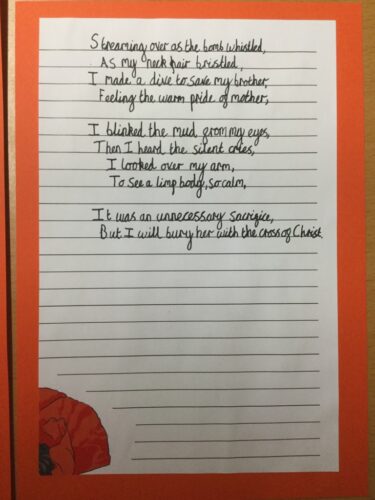 Streaming over as the bomb whistled,
As my neck hair bristled,
I made a dive to save my brother,
Feeling the warm pride of mother,
I blinked the mud from my eyes,
Then I heard the silent cries,
I looked over my arm,
To see a limp body, so calm,
It was an unnecessary sacrifice,
But I will bury her with the cross of Christ.